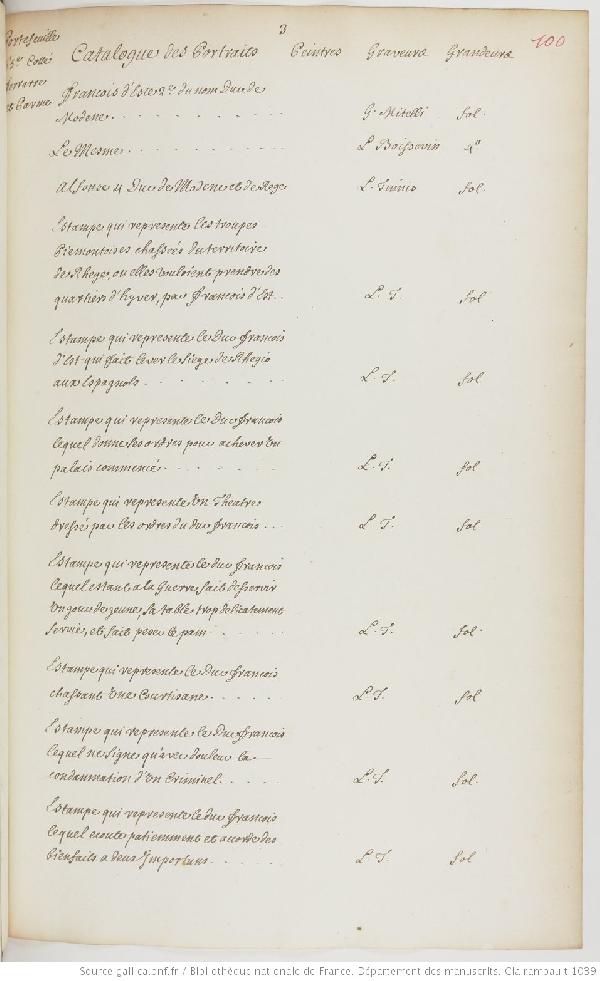 3
100
Portefeuille
Catalogue des Portraits Peintres Graveurs Grandeurs
et Parme
François d'Este 2.e du nom Duc de
Modene . . . . . . . . G. Mitelli fol.
Le Mesme . . . . . . . . L. Boissevin 4º
Alfonse 4 Duc de Modene et de Rege L. Tinnio fol.
Estampe qui represente les troupes
Piemontoises chassées du territoire
de Rhege, ou elles vouloient prendre des
quartiers d'hyver, par François d'Est . . L. T. fol
Estampe qui represente le Duc françois
d'Est qui fait lever le siege de Rhegio
aux Espagnols . . . . . . L. T. fol
Estampe qui represente le Duc François
lequel donne ses ordres pour achever un
palais commencé . . . . . . L. T. fol
Estampe qui represente un Theatre
dressé par les ordres du duc françois . . . L T. fol
Estampe qui represente le duc françois
lequel estant a la Guerre, fait desservir
un jour de jeune, sa table trop delicatement
servie, et fait peser le pain . . . . L. T. fol.
Estampe qui represente le Duc françois
chassant une Courtisane . . . . . L T. fol
Estampe qui represente le Duc françois
lequel ne signe qu'avec douleur la
condamnation d'un Criminel . . . . L. T. fol.
Estampe qui represente le duc françois
lequel ecoute patiemment et accorde des
bienfaits a deux Importuns . . . . . L T. fol
Source gallica.bnf.fr / Bibliothèque nationale de France. Département des manuscrits. Clairambault 1039